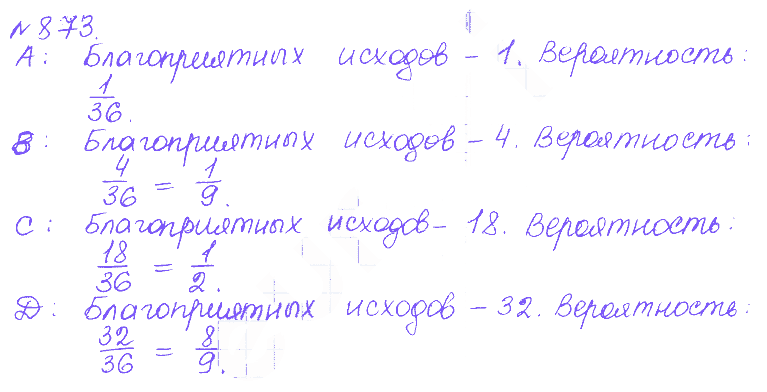 №873.
A: Благоприятных исходов – 1. Вероятность:
1/36.
B: Благоприятных исходов – 4. Вероятность:
4/36 = 1/9.
C: Благоприятных исходов – 18. Вероятность:
18/36 = 1/2.
D: Благоприятных исходов – 32. Вероятность:
32/36 = 8/9.